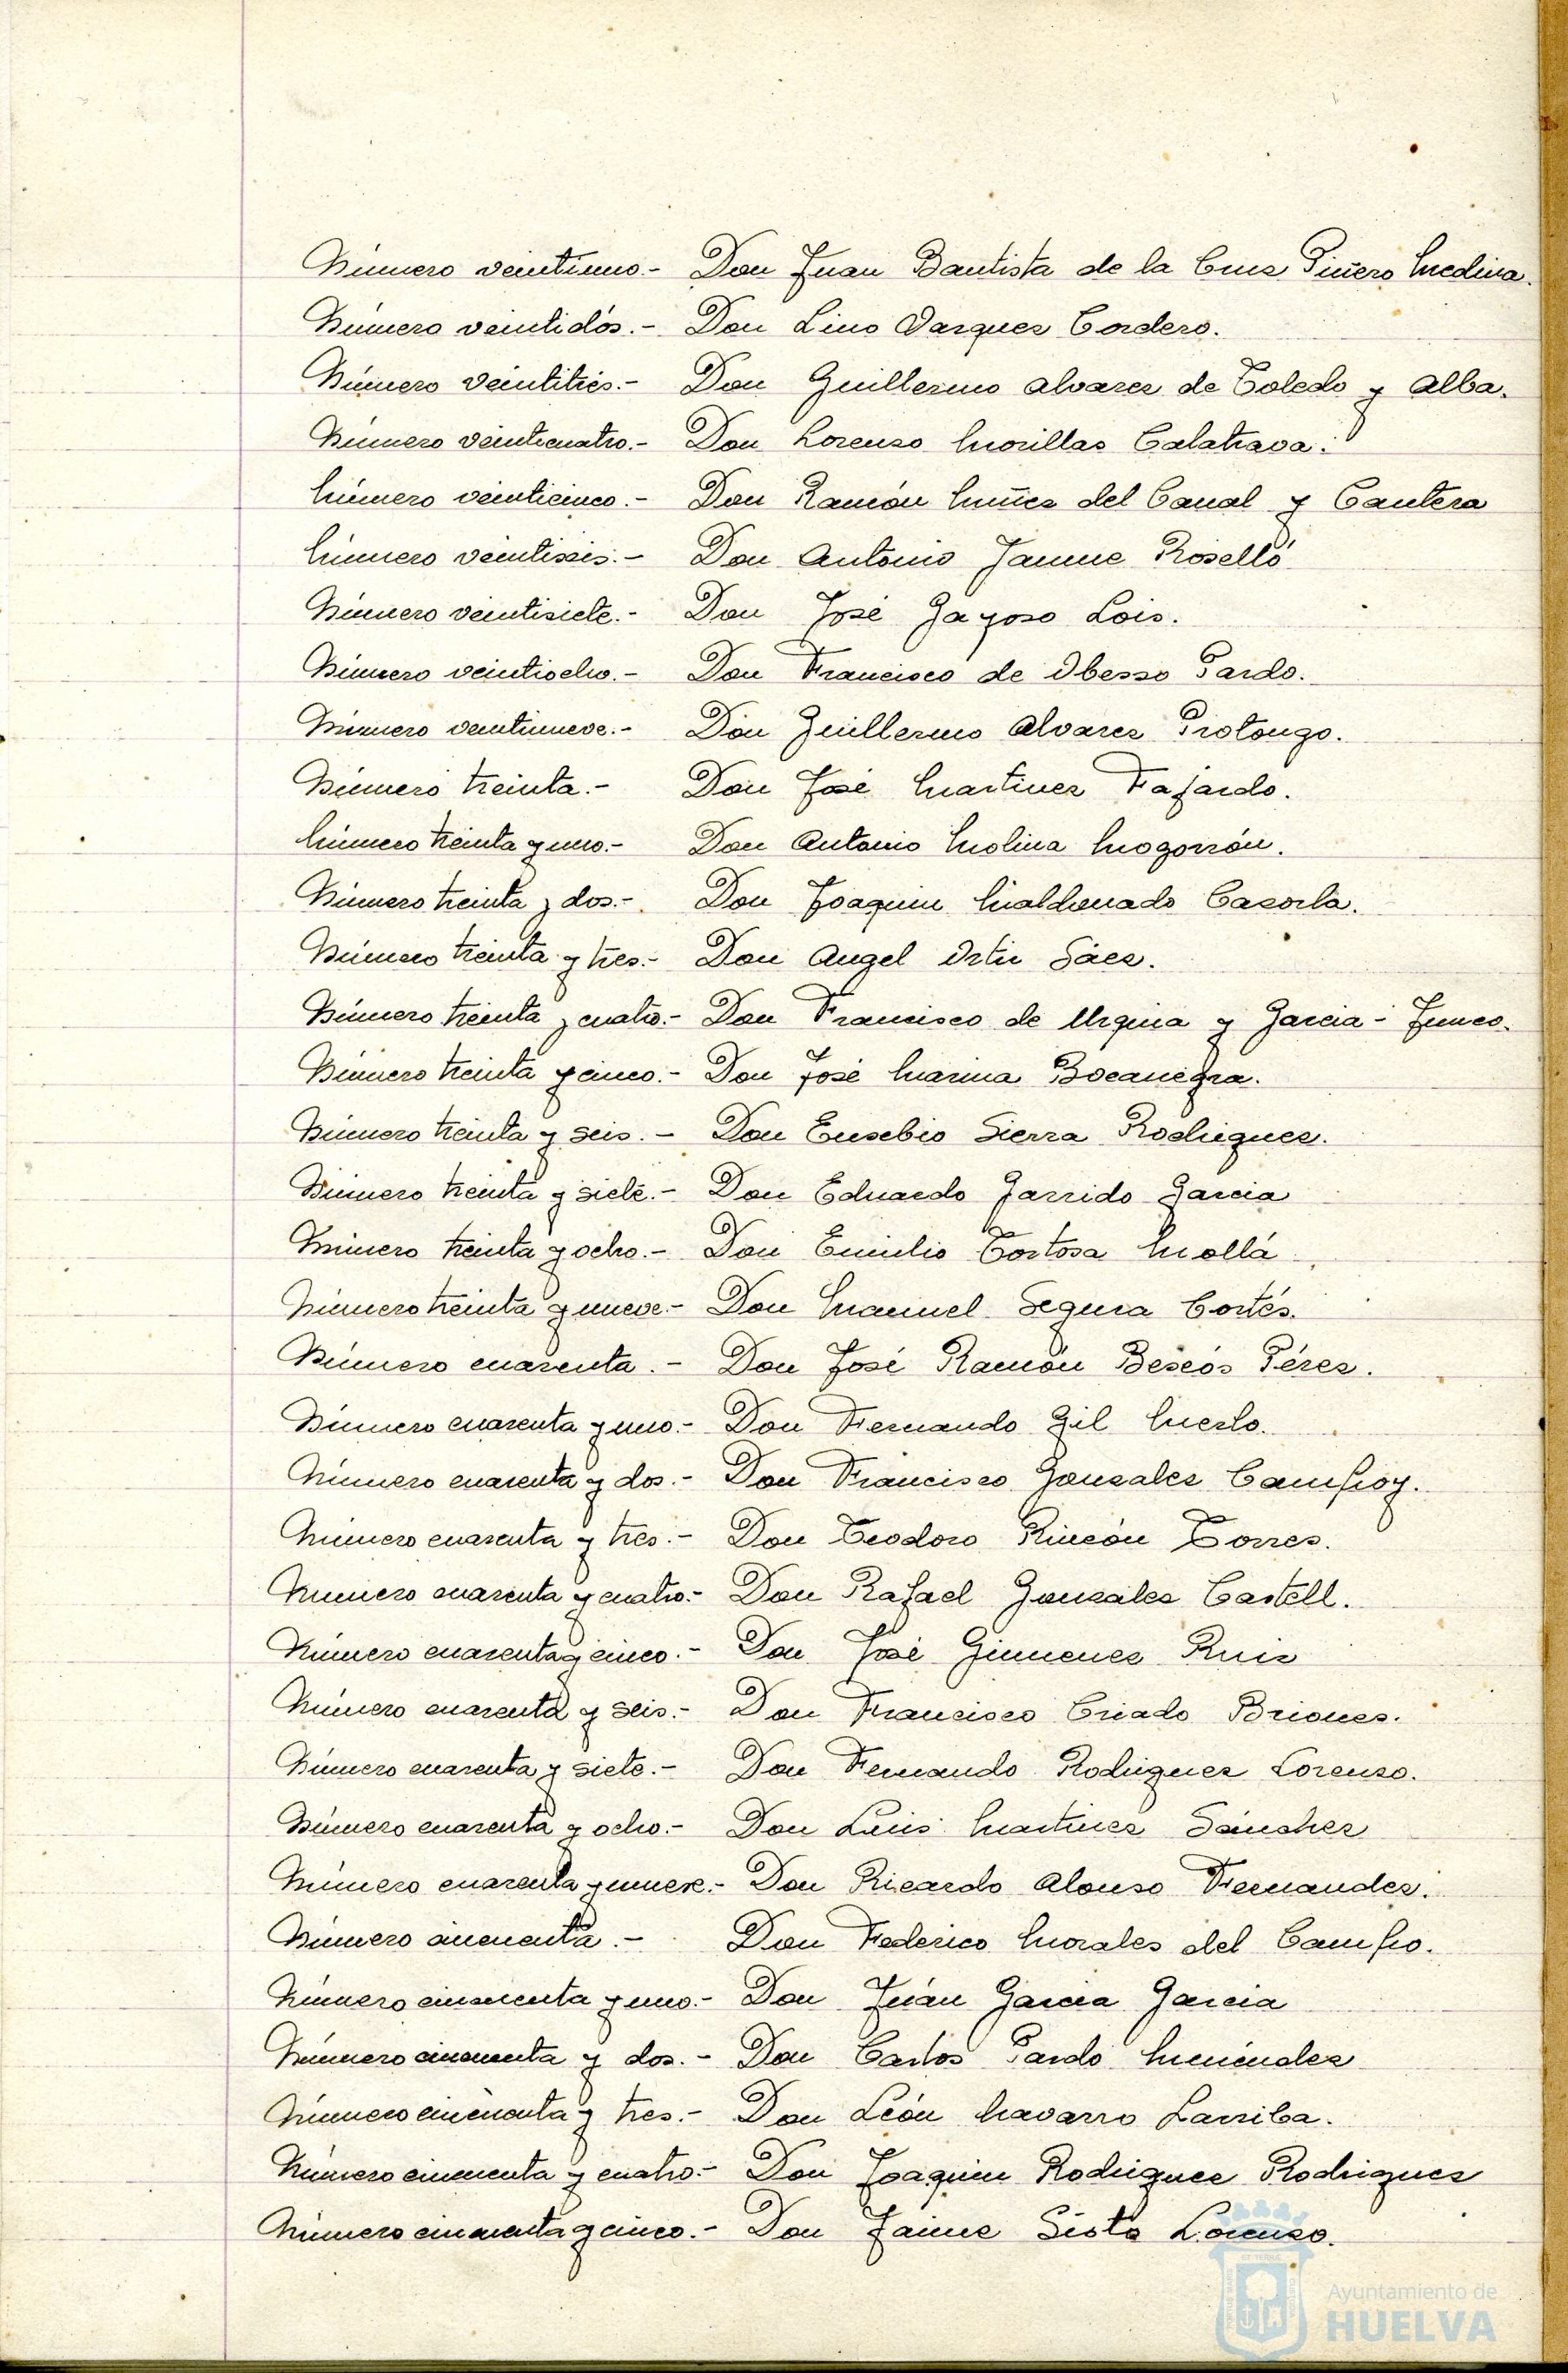 Número veintiuno.- Don Juan Bautista de la Cruz Piñero Medina.
Número veintidós.- Don Lino Vazquez Cordero.
Número veintitrés.- Don Guillermo Alvarez de Toledo y Alba.
Número veinticuatro.- Don Lorenzo Morillas Calatrava.
Número veinticinco.- Don Ramón Nuñez del Canal y Cantera
Número veintiseis.- Don Antonio Jaume Roselló
Número veintisiete.- Don José Gayoso Lois.
Número veintiocho.- Don Francisco de Obesso Pardo.
Número veintinueve.- Don Guillermo Alvarez Prolongo.
Número treinta.- Don José Martinez Fajardo.
Número treinta y uno.- Don Antonio Molina Mogorrón.
Número treinta y dos.- Don Joaquin Maldonado Cazorla.
Número treinta y tres.- Don Angel Ortiz Sáez.
Número treinta y cuatro.- Don Francisco de Urquia y Garcia-Junco.
Número treinta y cinco.- Don José Marina Bocanegra.
Número treinta y seis.- Don Eusebio Sierra Rodriguez.
Número treinta y siete.- Don Eduardo Garrido Garcia
Número treinta y ocho.- Don Emilio Tortosa Mollá
Número treinta y nueve.- Don Manuel Segura Cortés.
Número cuarenta.- Don José Ramón Bescós Pérez.
Número cuarenta y uno.- Don Fernando Gil
Número cuarenta y dos.- Don Francisco Gonzalez Campoy.
Número cuarenta y tres.- Don Teodoro Rincón Torres.
Número cuarenta y cuatro.- Don Rafael Gonzalez Castell.
Número cuarenta y cinco.- Don José Gimenez Ruiz
Número cuarenta y seis.- Don Francisco Criado Briones.
Número cuarenta y siete.- Don Fernando Rodriguez Lorenzo.
Número cuarenta y ocho.- Don Luis Martinez Sánchez
Número cuarenta y nueve.- Don Ricardo Alonso Fernandez.
Número cincuenta.- Don Federico Morales del Campo.
Número cincuenta y uno.- Don Juán Garcia Garcia
Número cincuenta y dos.- Don Carlos Pardo Menéndez
Número cincuenta y tres.- Don León Navarro Larriba.
Número cincuenta y cuatro.- Don Joaquin Rodriguez Rodriguez
Número cincuenta y cinco.- Don Jaime Sixto Lorenzo.
Ayuntamiento de
HUELVA